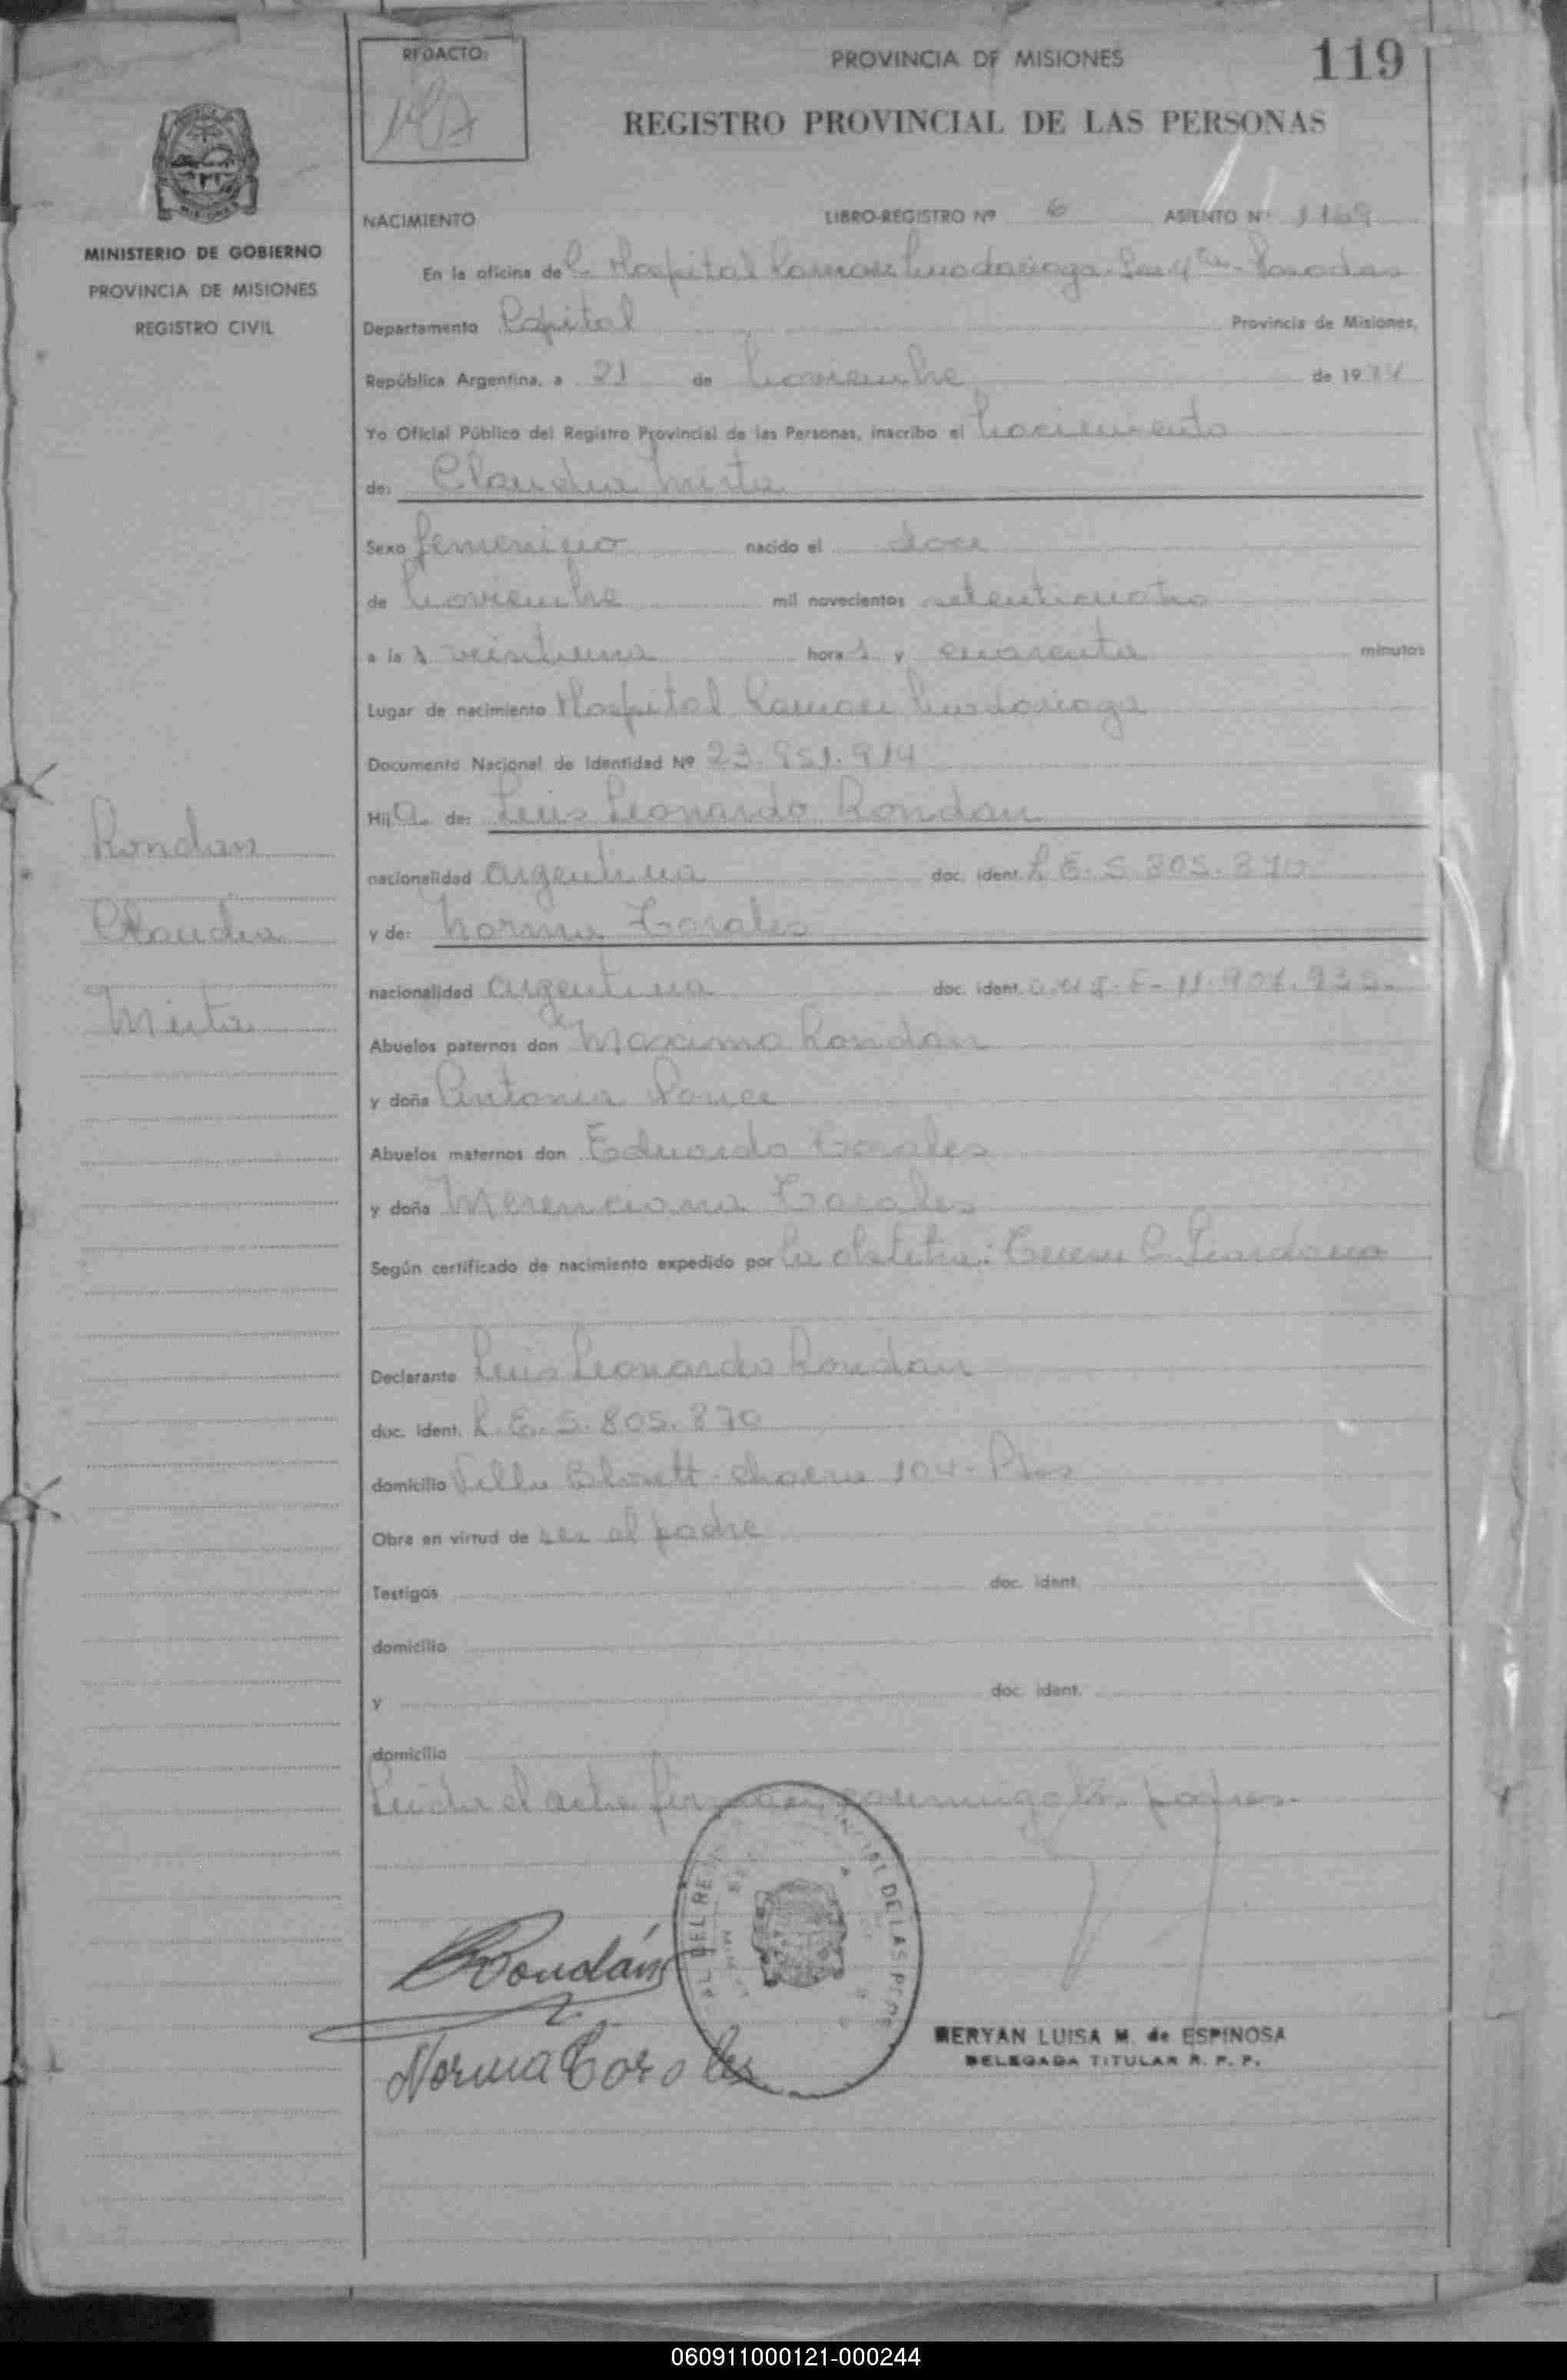 REDACTO:
PROVINCIA DE MISIONES
119
REGISTRO PROVINCIAL DE LAS PERSONAS
MINISTERIO DE GOBIERNO
PROVINCIA DE MISIONES
REGISTRO CIVIL
NACIMIENTO LIBRO-REGISTRO Nº 6 ASIENTO Nº 1169
En la oficina de Hospital Ramon Madariaga Posadas
Departamento Capital Provincia de Misiones,
República Argentina, a 21 de Noviembre de 1974
Yo Oficial Público del Registro Provincial de las Personas, inscribo el Nacimiento
de: Claudia Mirta
Sexo femenino nacido el doce
de Noviembre mil novecientos setenticuatro
a las veintiuna horas y cuarenta minutos
Lugar de nacimiento Hospital Ramon Madariaga
Documento Nacional de Identidad Nº 23.951.914
Hija de: Luis Leonardo Rondan
nacionalidad argentina doc. ident. L.E. 5.805.870
y de: Norma Corales
nacionalidad argentina doc. ident.
Abuelos paternos don Maximo Rondan
y doña Antonia Ponce
Abuelos maternos don Eduardo Corales
y doña Merenciana Corales
Según certificado de nacimiento expedido por la obstetra:
Declarante Luis Leonardo Rondan
doc. ident. L.E. 5.805.870
domicilio Villa Blosett - chacra 104 - Pdas
Obra en virtud de ser el padre
Testigos doc. ident.
domicilio
y doc. ident.
domicilio
Leida el acta firman conmigo los padres.
Rondan
Claudia
Mirta
Rondán
Norma Corales
MERYAN LUISA M. de ESPINOSA
DELEGADA TITULAR R. P. P.
060911000121-000244